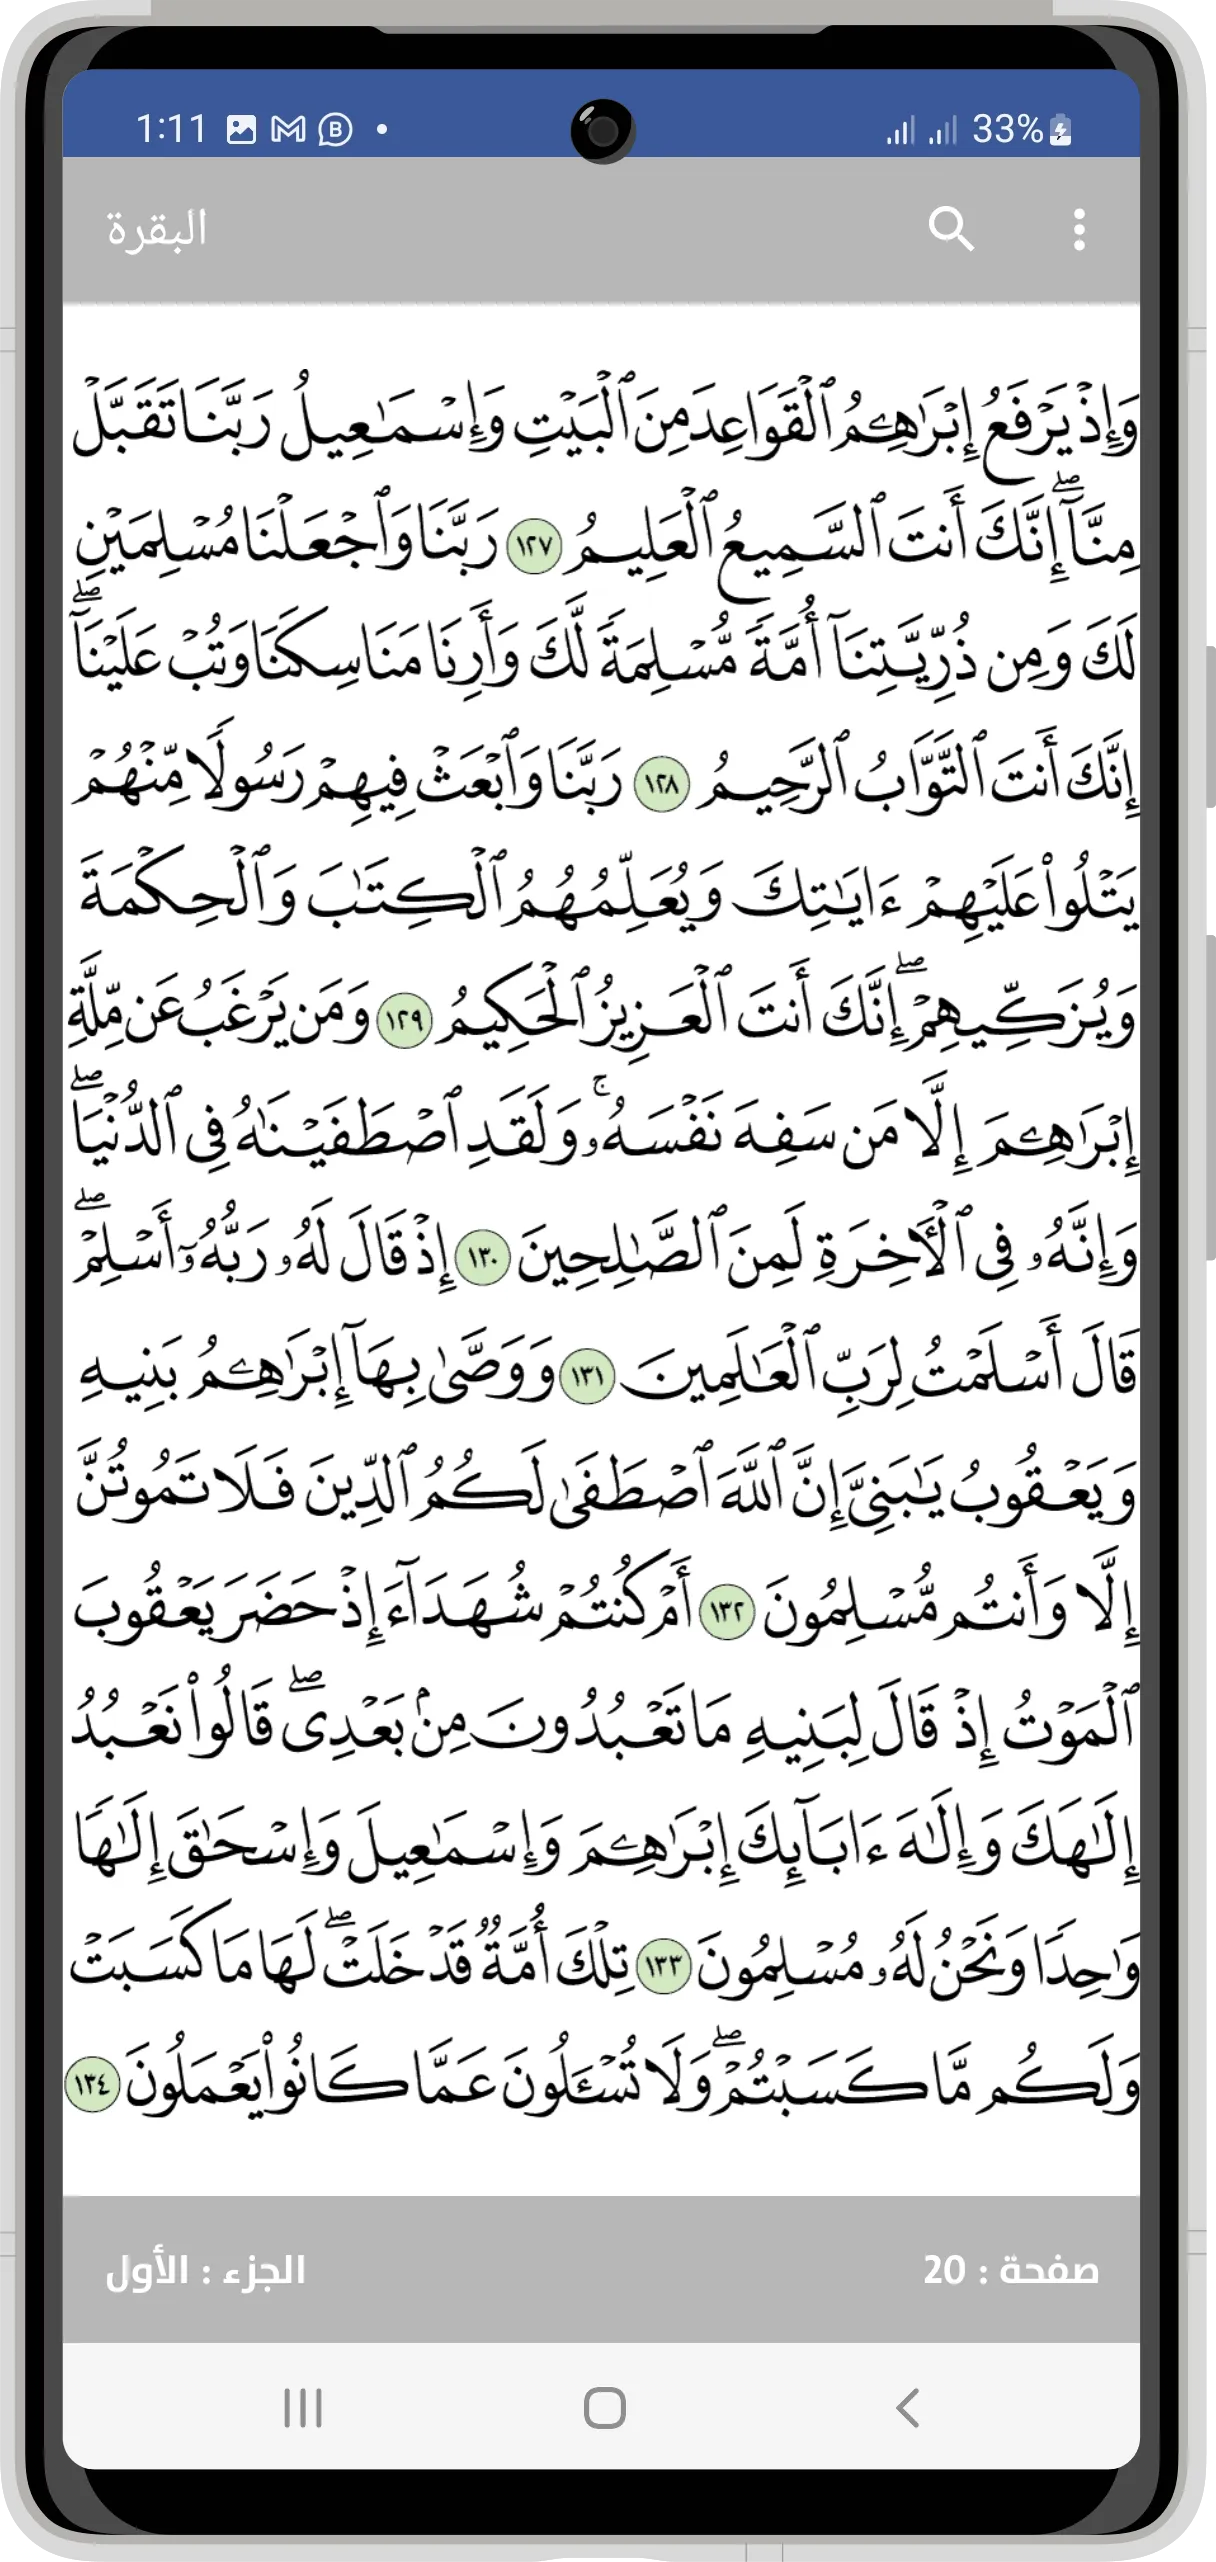 1:11 33%
البقرة
وَإِذْ يَرْفَعُ إِبْرَٰهِـۧمُ ٱلْقَوَاعِدَ مِنَ ٱلْبَيْتِ وَإِسْمَـٰعِيلُ رَبَّنَا تَقَبَّلْ
مِنَّآ ۖ إِنَّكَ أَنتَ ٱلسَّمِيعُ ٱلْعَلِيمُ ١٢٧ رَبَّنَا وَٱجْعَلْنَا مُسْلِمَيْنِ
لَكَ وَمِن ذُرِّيَّتِنَآ أُمَّةً مُّسْلِمَةً لَّكَ وَأَرِنَا مَنَاسِكَنَا وَتُبْ عَلَيْنَآ ۖ
إِنَّكَ أَنتَ ٱلتَّوَّابُ ٱلرَّحِيمُ ١٢٨ رَبَّنَا وَٱبْعَثْ فِيهِمْ رَسُولًا مِّنْهُمْ
يَتْلُوا۟ عَلَيْهِمْ ءَايَـٰتِكَ وَيُعَلِّمُهُمُ ٱلْكِتَـٰبَ وَٱلْحِكْمَةَ
وَيُزَكِّيهِمْ ۖ إِنَّكَ أَنتَ ٱلْعَزِيزُ ٱلْحَكِيمُ ١٢٩ وَمَن يَرْغَبُ عَن مِّلَّةِ
إِبْرَٰهِـۧمَ إِلَّا مَن سَفِهَ نَفْسَهُۥ ۚ وَلَقَدِ ٱصْطَفَيْنَـٰهُ فِى ٱلدُّنْيَا ۖ
وَإِنَّهُۥ فِى ٱلْـَٔاخِرَةِ لَمِنَ ٱلصَّـٰلِحِينَ ١٣٠ إِذْ قَالَ لَهُۥ رَبُّهُۥٓ أَسْلِمْ ۖ
قَالَ أَسْلَمْتُ لِرَبِّ ٱلْعَـٰلَمِينَ ١٣١ وَوَصَّىٰ بِهَآ إِبْرَٰهِـۧمُ بَنِيهِ
وَيَعْقُوبُ يَـٰبَنِىَّ إِنَّ ٱللَّهَ ٱصْطَفَىٰ لَكُمُ ٱلدِّينَ فَلَا تَمُوتُنَّ
إِلَّا وَأَنتُم مُّسْلِمُونَ ١٣٢ أَمْ كُنتُمْ شُهَدَآءَ إِذْ حَضَرَ يَعْقُوبَ
ٱلْمَوْتُ إِذْ قَالَ لِبَنِيهِ مَا تَعْبُدُونَ مِنۢ بَعْدِى ۖ قَالُوا۟ نَعْبُدُ
إِلَـٰهَكَ وَإِلَـٰهَ ءَابَآئِكَ إِبْرَٰهِـۧمَ وَإِسْمَـٰعِيلَ وَإِسْحَـٰقَ إِلَـٰهًا
وَٰحِدًا وَنَحْنُ لَهُۥ مُسْلِمُونَ ١٣٣ تِلْكَ أُمَّةٌ قَدْ خَلَتْ ۖ لَهَا مَا كَسَبَتْ
وَلَكُم مَّا كَسَبْتُمْ ۖ وَلَا تُسْـَٔلُونَ عَمَّا كَانُوا۟ يَعْمَلُونَ ١٣٤
صفحة : 20 الجزء : الأول